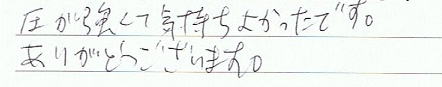 圧が強くて気持ちよかったです。
ありがとうございます。